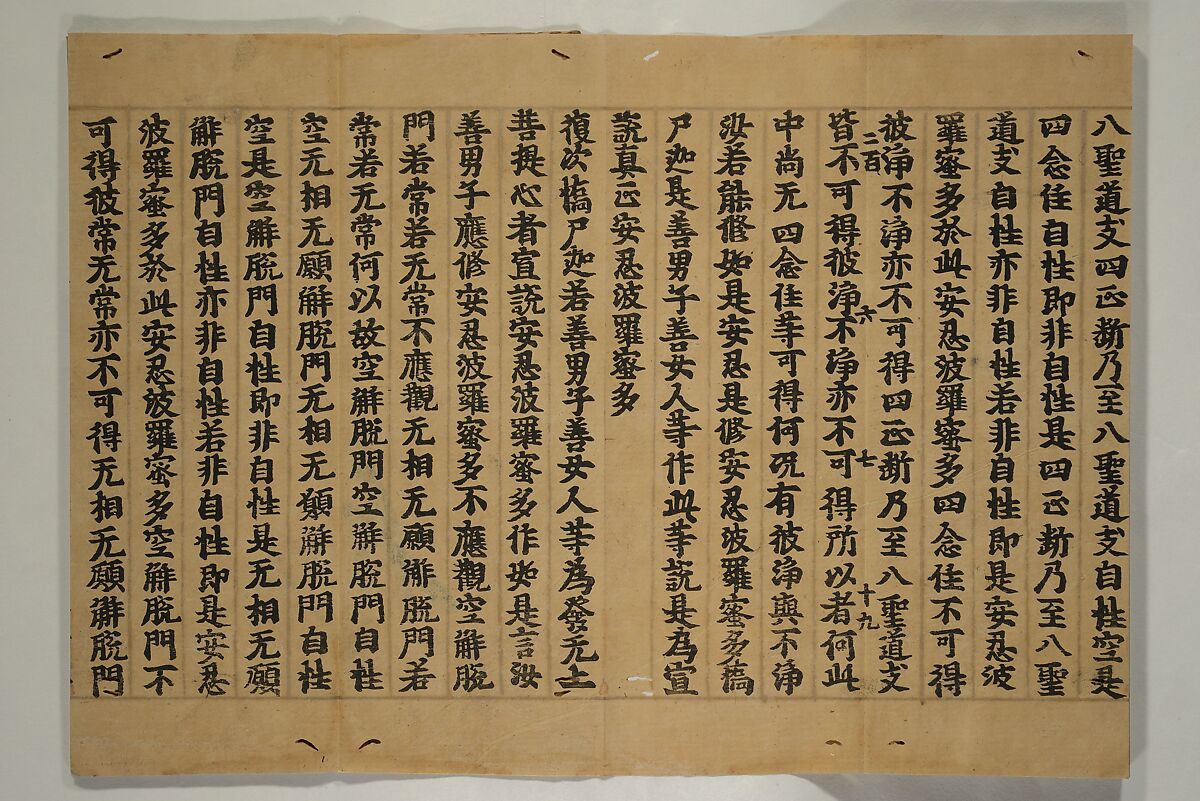 八聖道支四正断乃至八聖道支自性空是
四念住自性即非自性是四正断乃至八聖
道支自性亦非自性若非自性即是安忍波
羅蜜多於此安忍波羅蜜多四念住不可得
彼淨不淨亦不可得四正断乃至八聖道支
二百 六 七 十九
皆不可得彼淨不淨亦不可得所以者何此
中尚无四念住等可得何况有彼淨與不淨
汝若能修如是安忍是修安忍波羅蜜多憍
尸迦是善男子善女人等作此等說是為宣
說真正安忍波羅蜜多
復次憍尸迦若善男子善女人等為發无上
菩提心者宣說安忍波羅蜜多作如是言汝
善男子應修安忍波羅蜜多不應觀空解脫
門若常若无常不應觀无相无願解脫門若
常若无常何以故空解脫門空解脫門自性
空无相无願解脫門无相无願解脫門自性
空是空解脫門自性即非自性是无相无願
解脫門自性亦非自性若非自性即是安忍
波羅蜜多於此安忍波羅蜜多空解脫門不
可得彼常无常亦不可得无相无願解脫門